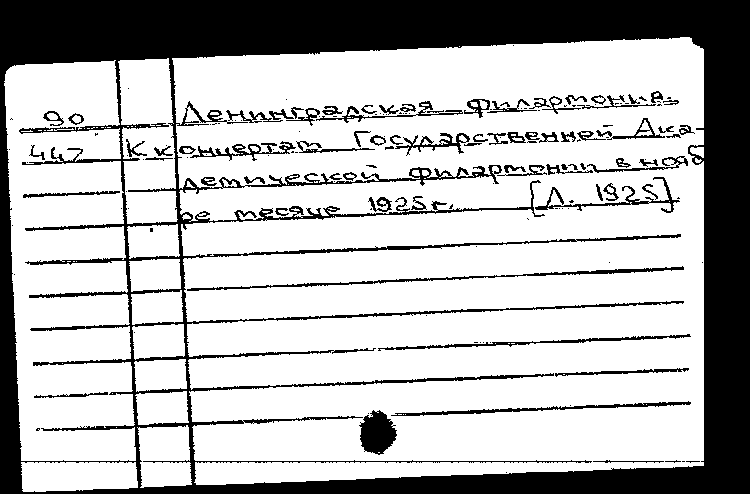 90 Ленинградская филармония.
447 К концертам Государственной Ака-
демической филармонии в нояб
ре месяце 1925 г. [Л., 1925]